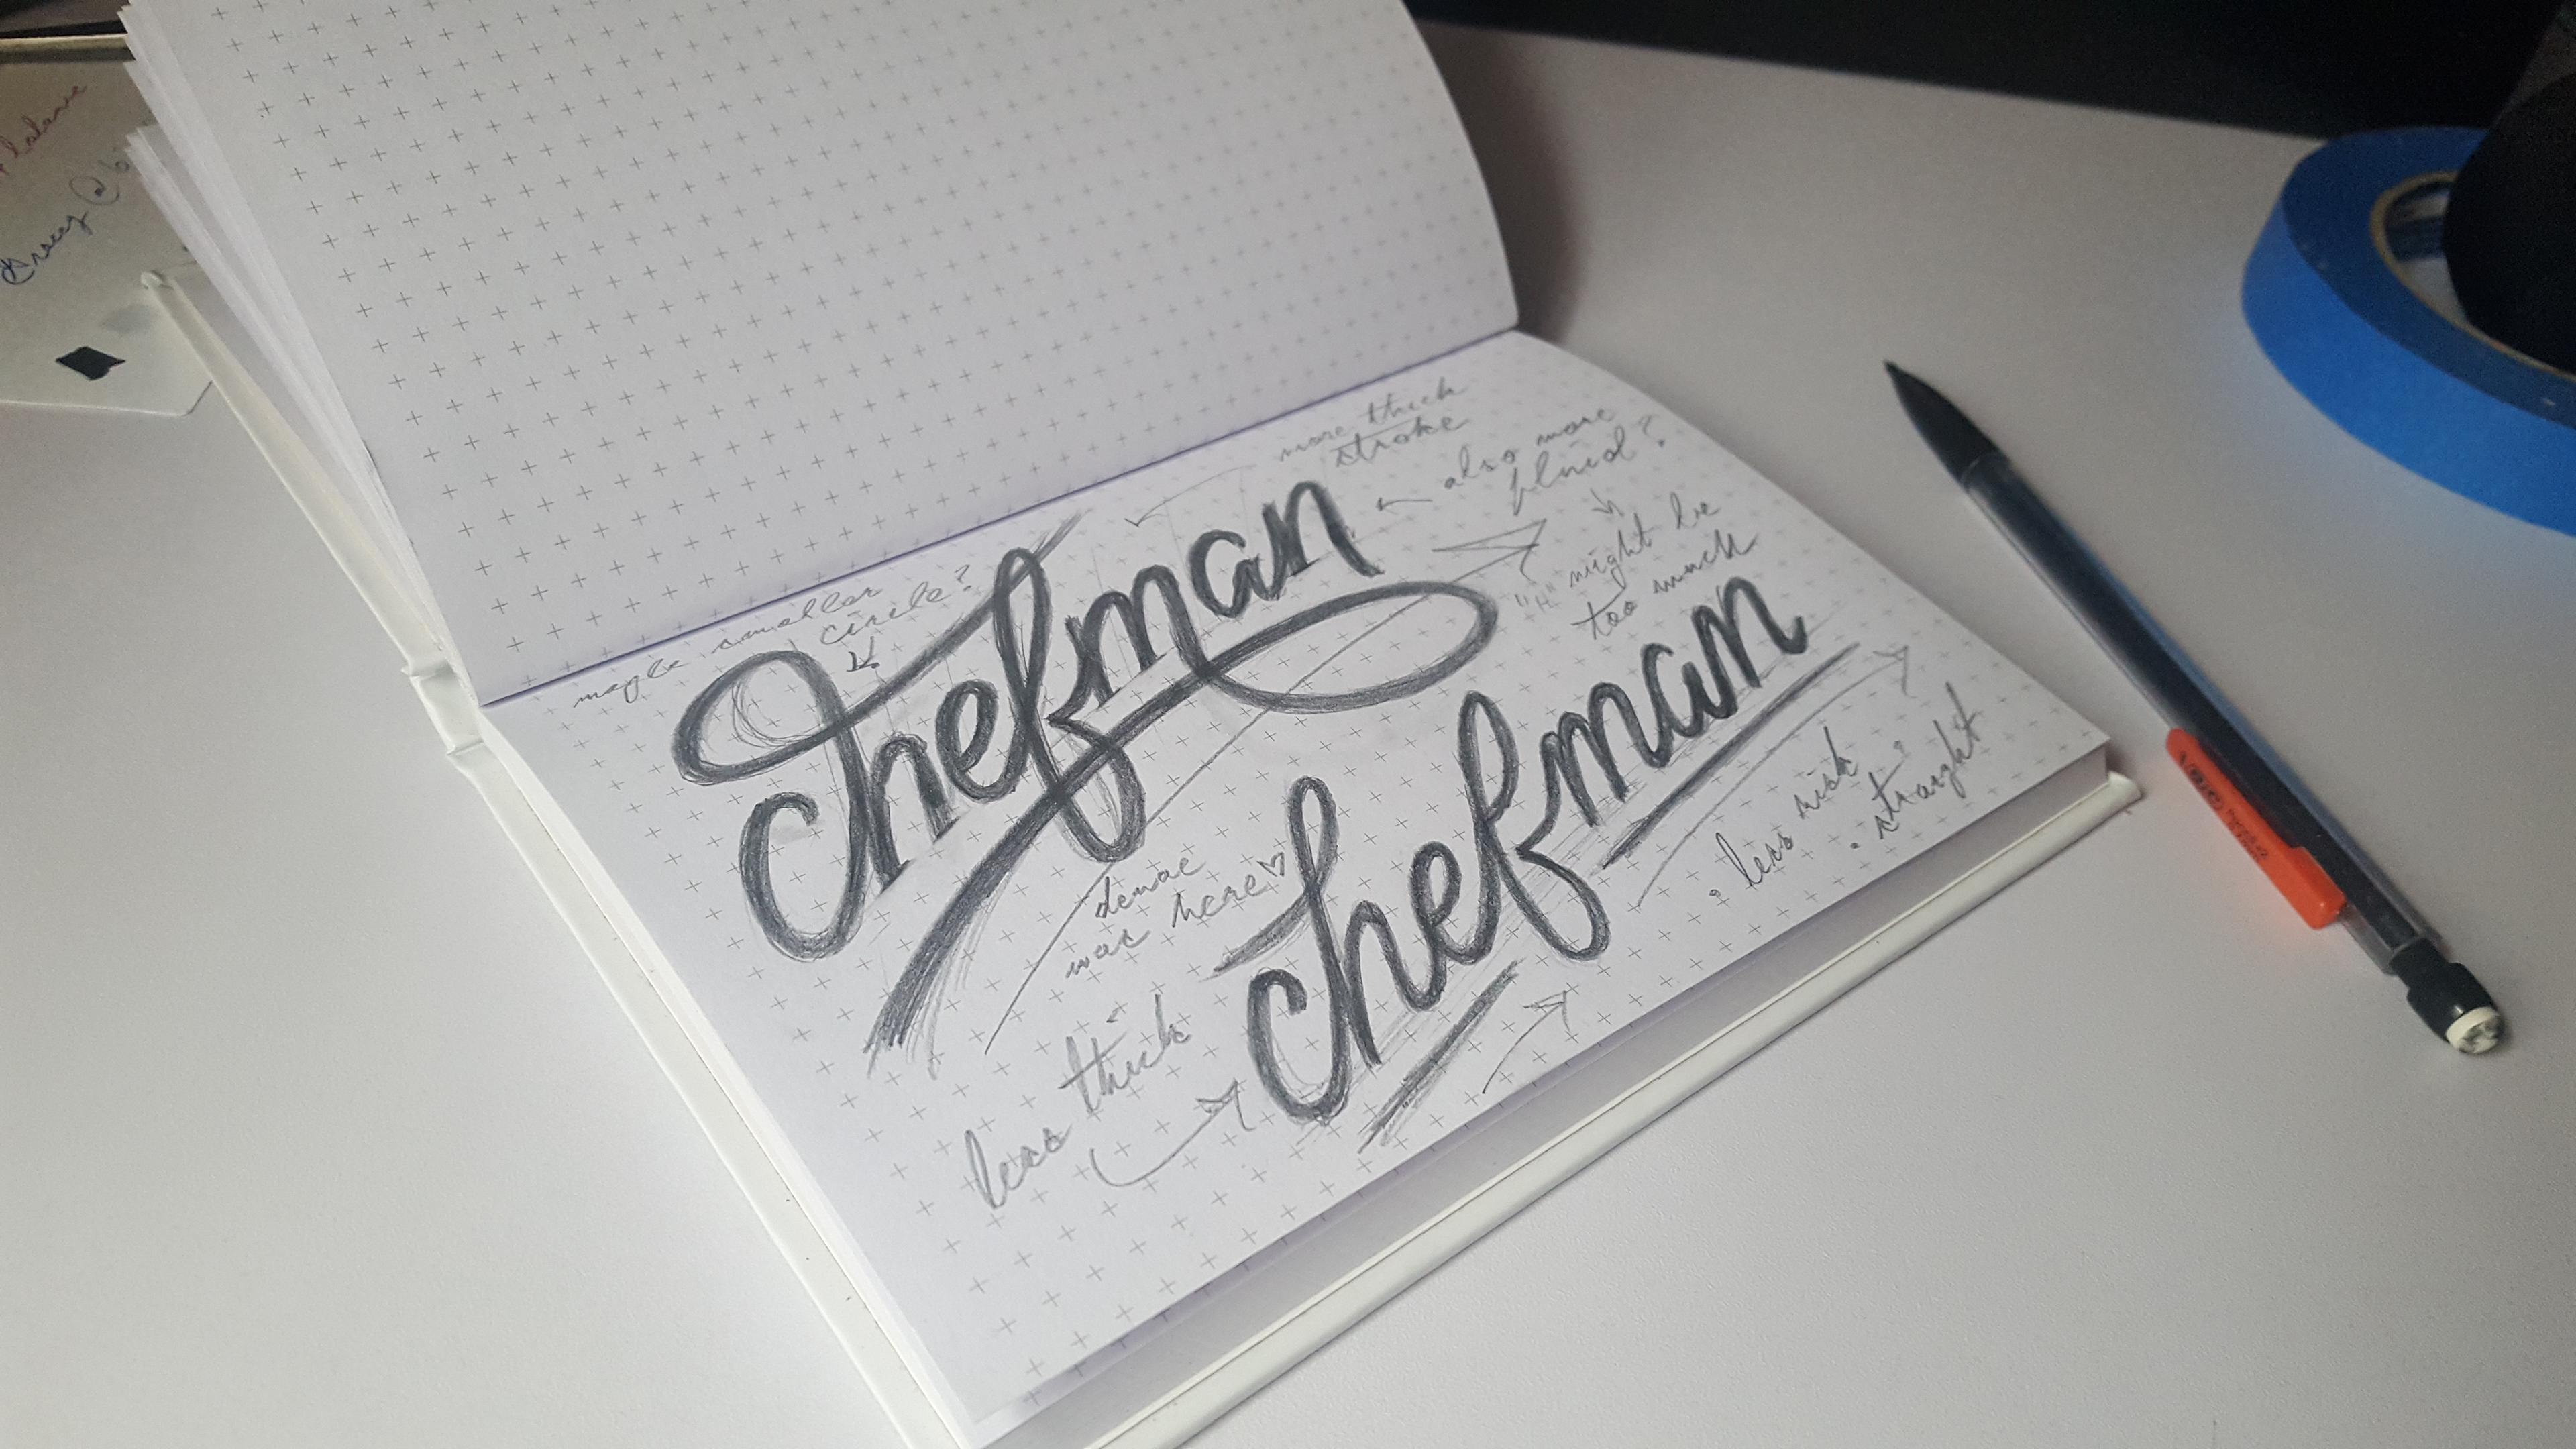 more thick
stroke
also more
fluid?
"H" might be
too much
maybe smaller
circle?
Chefman
chefman
denae
was here
less thick
less risk
straight
BIC